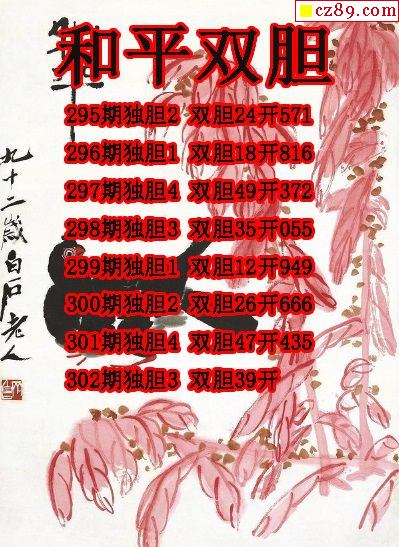 cz89.com
和平双胆
295期独胆2 双胆24开571
296期独胆1 双胆18开816
297期独胆4 双胆49开372
298期独胆3 双胆35开055
299期独胆1 双胆12开949
300期独胆2 双胆26开666
301期独胆4 双胆47开435
302期独胆3 双胆39开
九十二岁白石老人